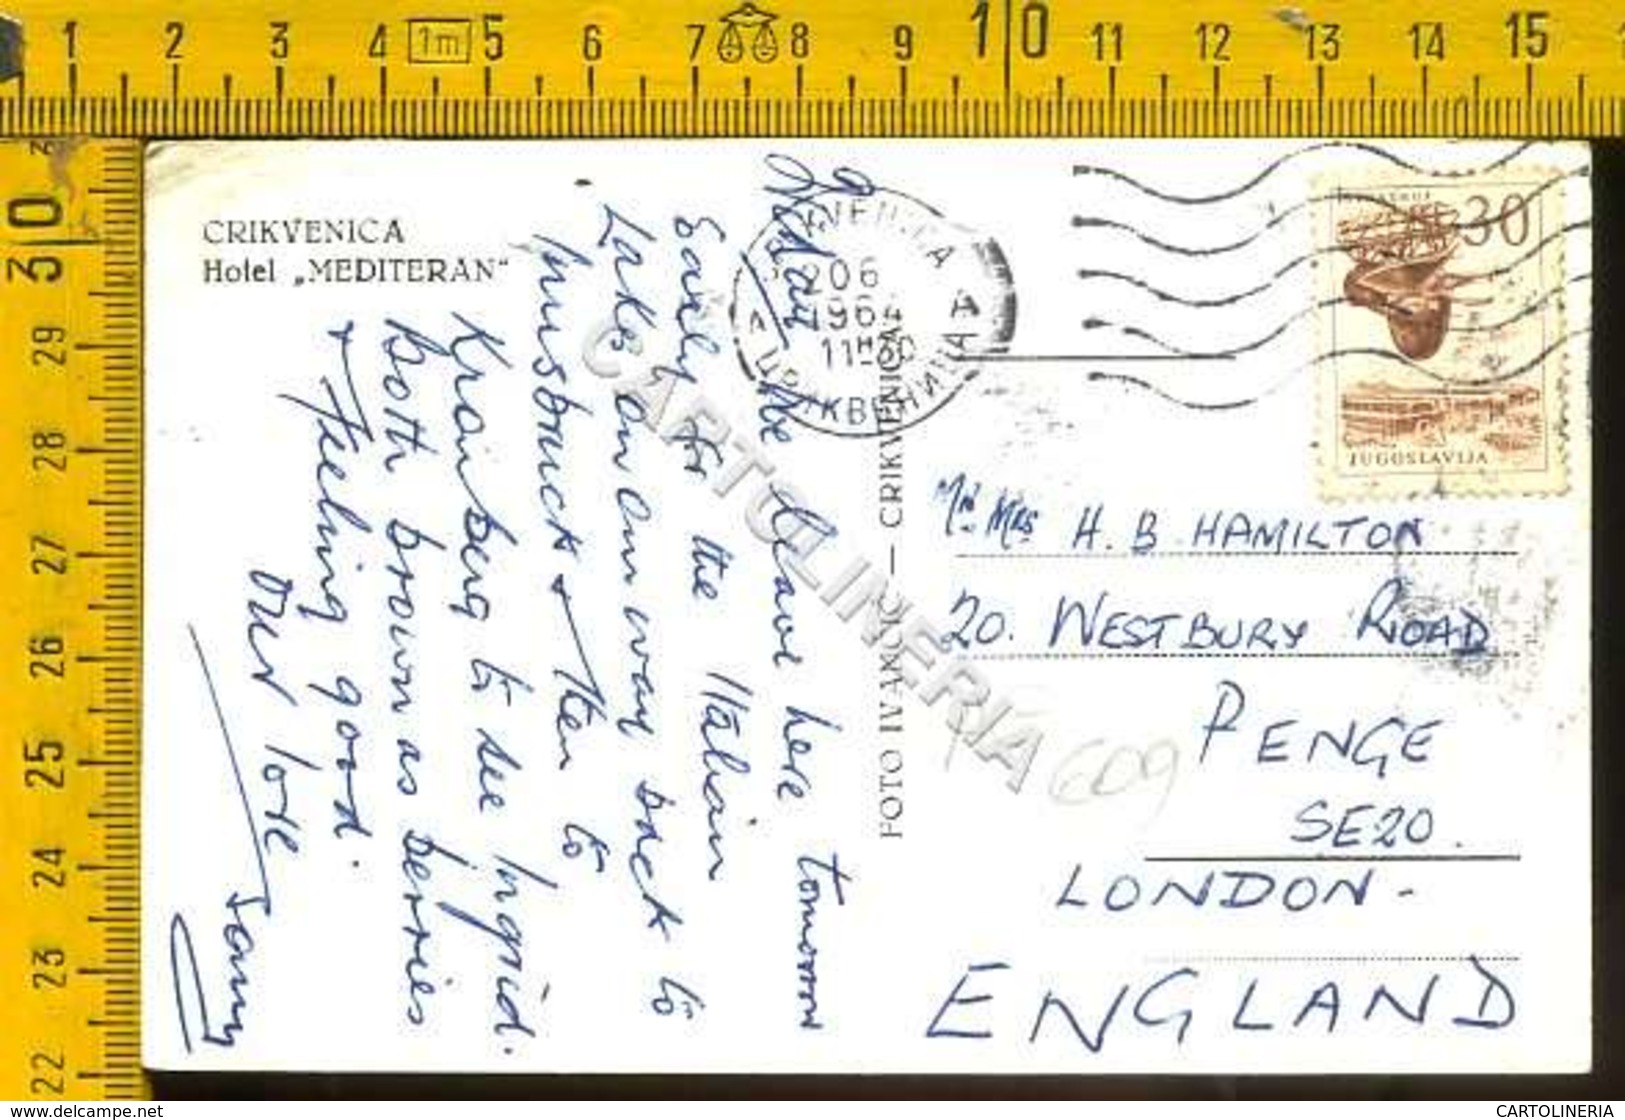 CRIKVENICA
Hotel „MEDITERAN“
Friday. We leave here tomorrow
early for the Italian
Lakes on our way back to
Innsbruck & then to
Krainberg to see Ingrid.
Both brown as berries
& feeling good.
Our love
FOTO IVANČIĆ — CRIKVENICA
206
1964
11 30
ЦРИКВЕНИЦА
30
JUGOSLAVIJA
Mr. Mrs H. B HAMILTON
20. WESTBURY ROAD
PENGE
SE20.
LONDON -
ENGLAND
609
CARTOLINERIA
1 2 3 4 1m 5 6 7 8 9 10 11 12 13 14 15
30 29 28 27 26 25 24 23 22
https://www.delcampe.net
CARTOLINERIA